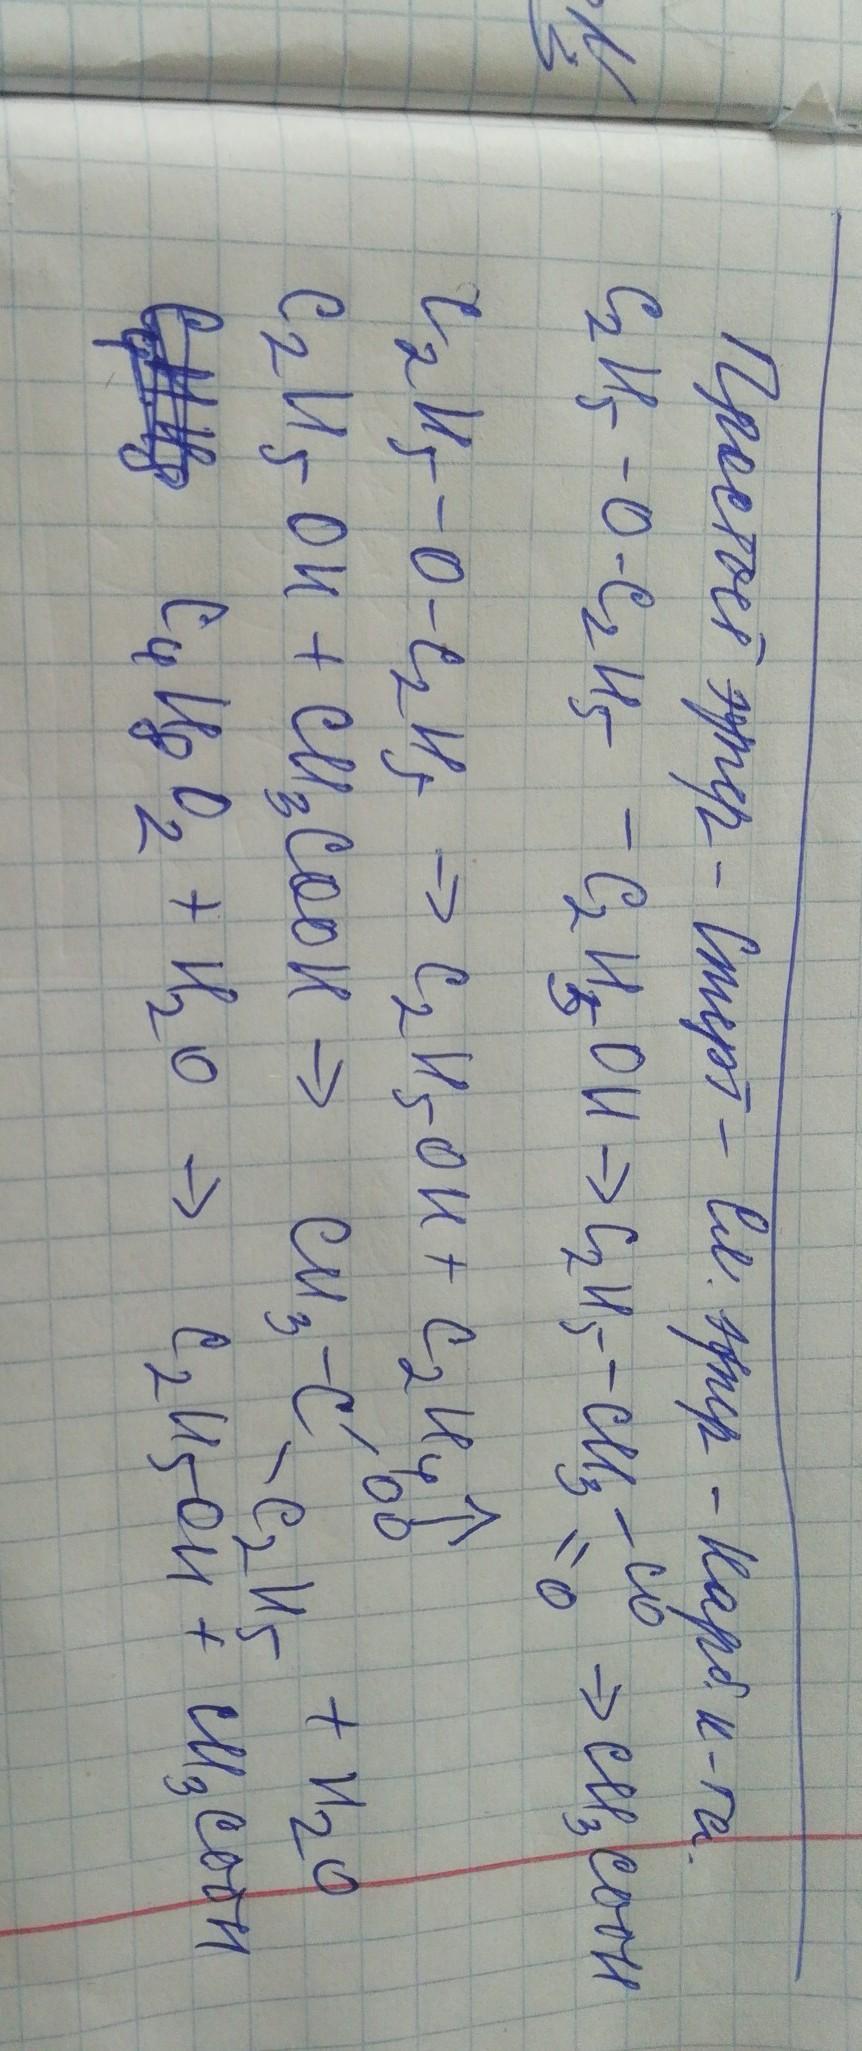 Простой эфир - Спирт - Сл. эфир - Карб. к-та.
C₂H₅-O-C₂H₅ - C₂H₅OH → C₂H₅-CH₃-CO=O → CH₃COOH
C₂H₅-O-C₂H₅ → C₂H₅OH + C₂H₄↑
C₂H₅OH + CH₃COOH → CH₃-C-C₂H₅ + H₂O
C₄H₈O₂ + H₂O → C₂H₅OH + CH₃COOH